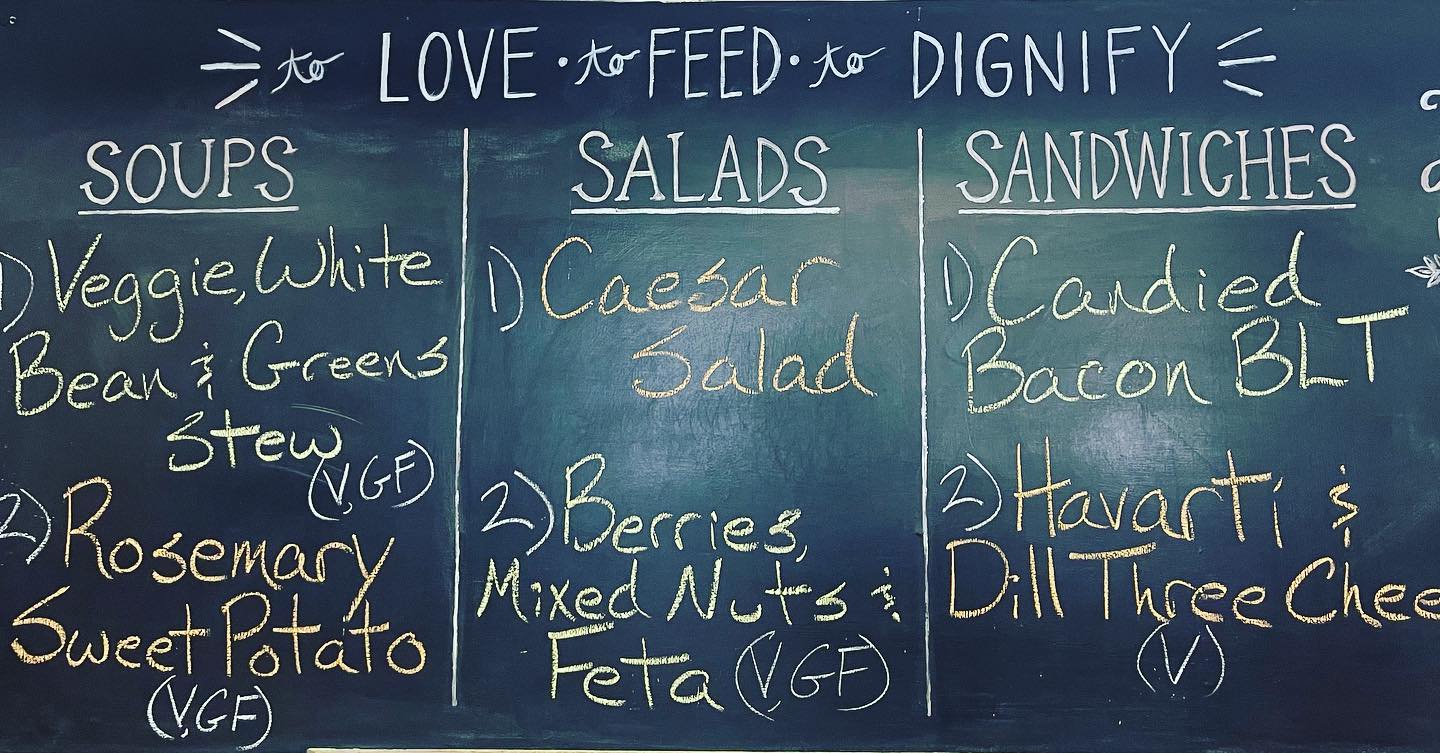 to LOVE · to FEED · to DIGNIFY
SOUPS
1) Veggie, White
Bean & Greens
Stew
(V, GF)
2) Rosemary
Sweet Potato
(V, GF)
SALADS
1) Caesar
Salad
2) Berries,
Mixed Nuts &
Feta (V, GF)
SANDWICHES
1) Candied
Bacon BLT
2) Havarti &
Dill Three Chee
(V)